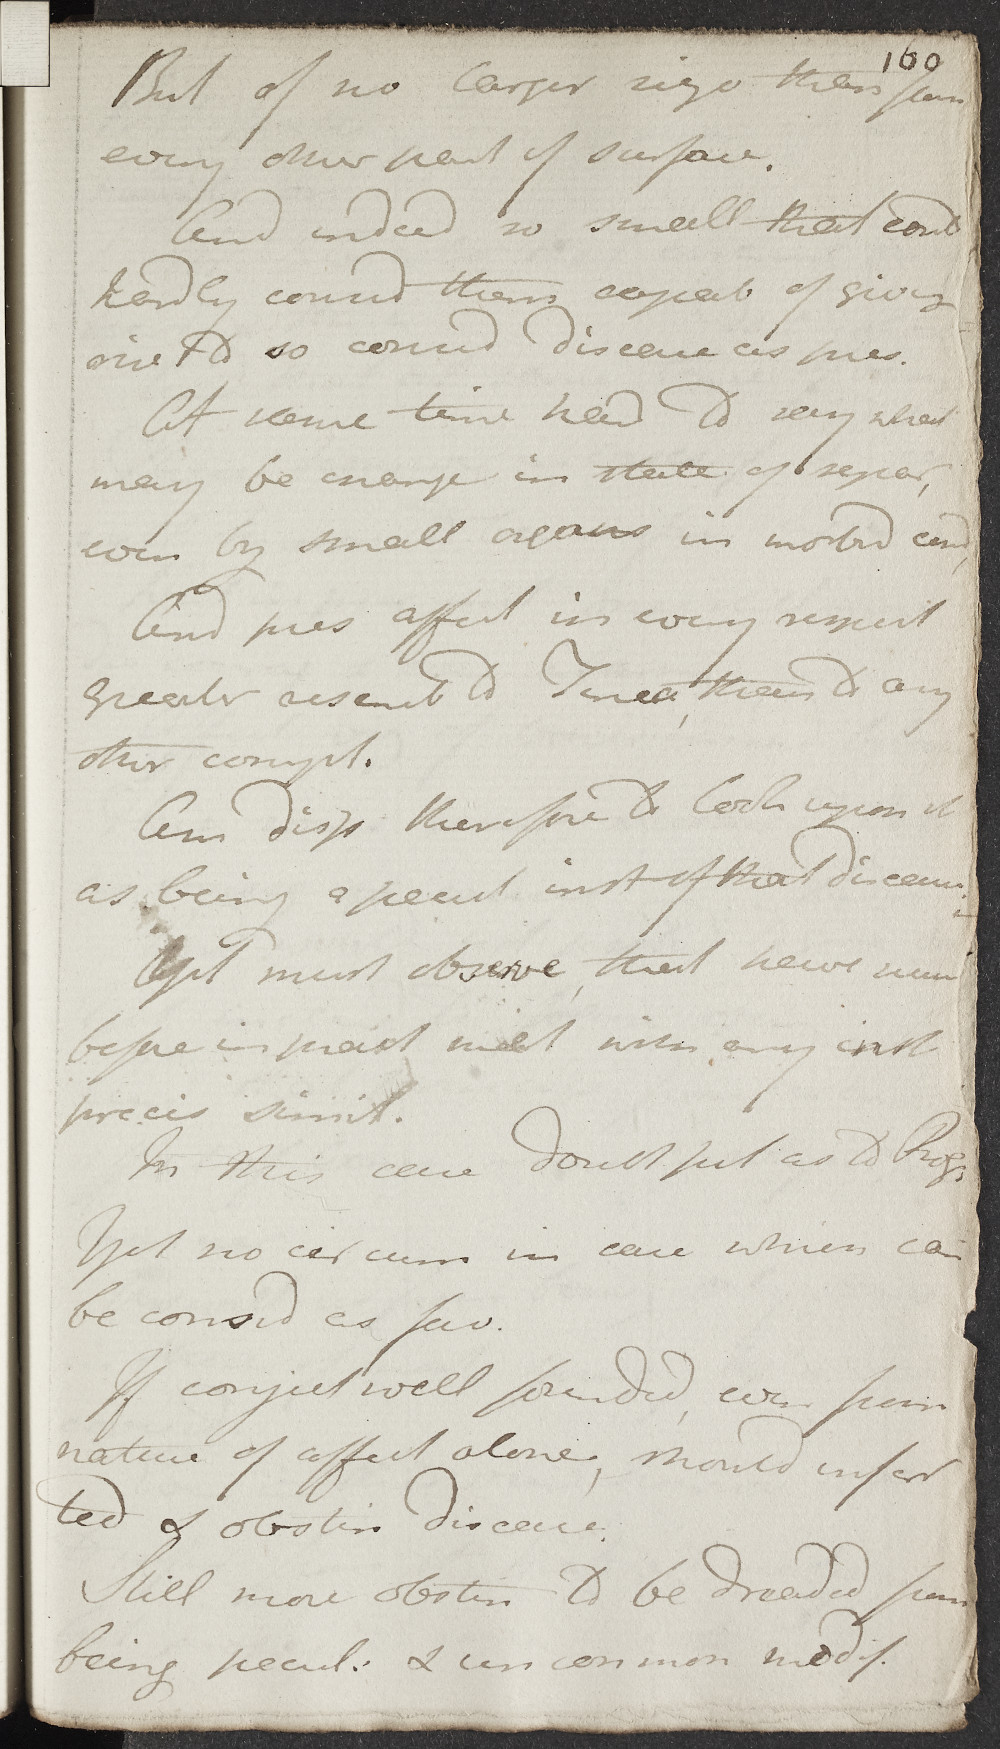 160
But of no larger size than from
every other part of surface.
And indeed so small that could
hardly consid them capab of giving
rise to so consid disease as pres.
At same time hard to say what
may be change in state of separ,
even by small organs in morbid cond,
And pres affect in every respect
greater resemb to Tinea, than to any
other compl.
Am disp therefore to look upon it
as being a pecul inst of that disease
Yet must observe, that have never
before in pract met with any inst
precis simil.
In this case doubtful as to Prog.
Yet no circum in case which can
be consid as fav.
If conject well founded, even from
nature of affect alone, should infer
ted & obstin disease.
Still more obstin to be dreaded from
being pecul: & uncommon modif.